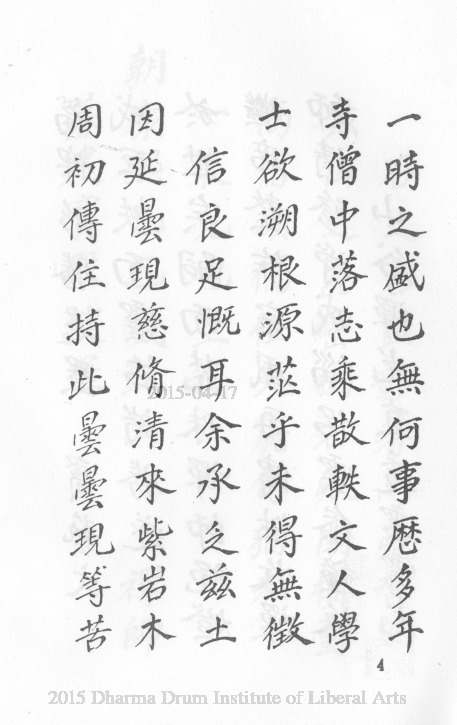 一時之盛也無何事歷多年
寺僧中落志乘散軼文人學
士欲溯根源茫乎未得無徵
信良足慨耳余承乏兹土
因延曇現慈脩清來紫岩木
周初傳住持此曇曇現等苦
4
2015-04-17
2015 Dharma Drum Institute of Liberal Arts